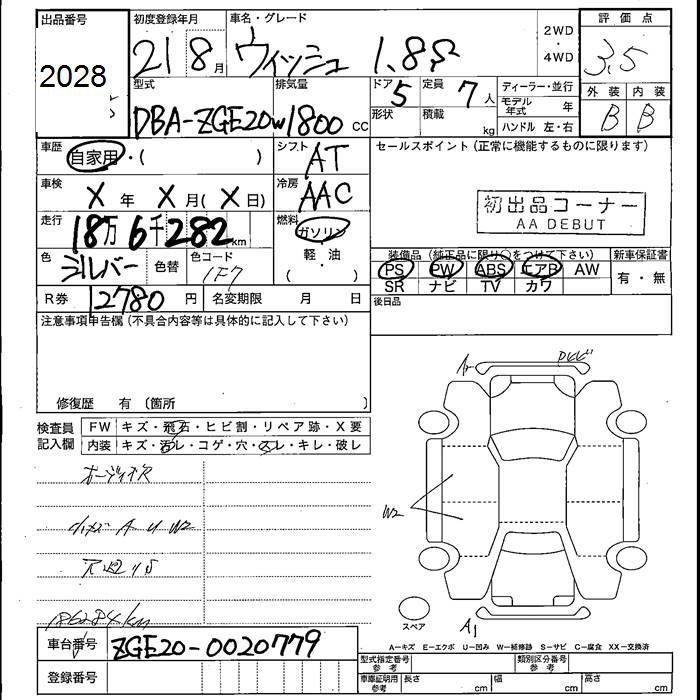 出品番号 初度登録年月 車名・グレード 2WD ・ 4WD 評価点
2028 21 8月 ウィッシュ 1.8S 3.5
型式 排気量 ドア 5 定員 7人 ディーラー・並行 外装 内装
DBA-ZGE20W 1800cc 形状 積載 kg モデル年式 年 B B
ハンドル 左・右
車歴 自家用・( ) シフト AT セールスポイント(正常に機能するものに限ります)
車検 X年 X月(X日) 冷房 AAC 初出品コーナー
AA DEBUT
走行 18万6千282km 燃料 ガソリン
軽・油
( )
色 シルバー 色替 色コード 1F7 装備品(純正品に限り○をつけて下さい) 新車保証書
PS PW ABS エアB AW 有・無
SR ナビ TV カワ
R券 12780円 名変期限 月 日 後日品
注意事項申告欄(不具合内容等は具体的に記入して下さい)
修復歴 有〔箇所 〕
検査員記入欄 FW キズ・飛石・ヒビ割・リペア跡・X要
内装 キズ・汚レ・コゲ・穴・スレ・キレ・破レ
W2
186284km
スペア
A1
A=キズ E=エクボ U=凹み W=補修跡 S=サビ C=腐食 XX=交換済
車台番号 ZGE20-0020779
型式指定番号 参考 類別区分番号 参考
登録番号 車庫証明用参考 長さ cm 幅 cm 高さ cm